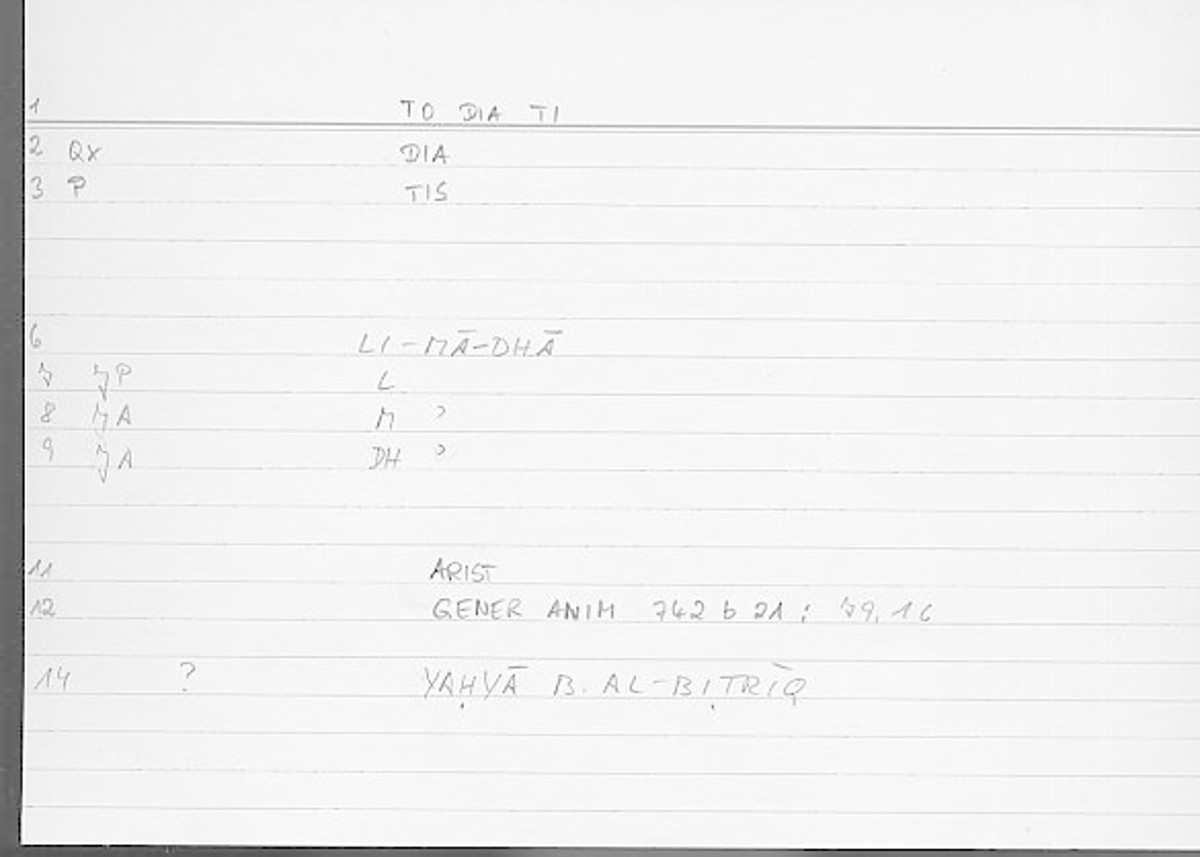 1 TO DIA TI
2 QX DIA
3 P TIS
6 LI-MĀ-DHĀ
7 JP L
8 JA M ʾ
9 JA DH ʾ
11 ARIST
12 GENER ANIM 742 b 21 ; 79,16
14 ? YAḤYĀ B. AL-BIṬRĪQ